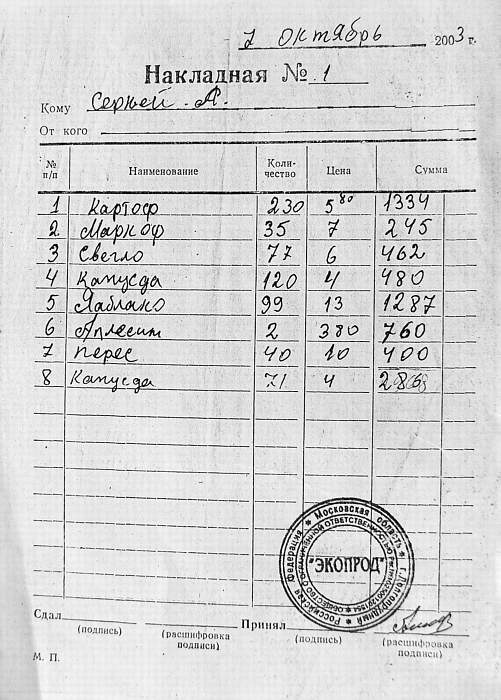 7 октябрь 2003 г.
Накладная № 1
Кому Сергней. А.
От кого
№ п/п Наименование Коли-чество Цена Сумма
1 Картоф 230 5 80 1334
2 Маркоф 35 7 245
3 Свегло 77 6 462
4 Капусда 120 4 480
5 Яаблако 99 13 1287
6 Аплесин 2 380 760
7 перес 40 10 400
8 Капусда 71 4
Российская Федерация * Московская область * Долгопрудный *
"ЭКОПРОД"
Сдал Принял
(подпись) (расшифровка подписи) (подпись) (расшифровка подписи)
М. П.